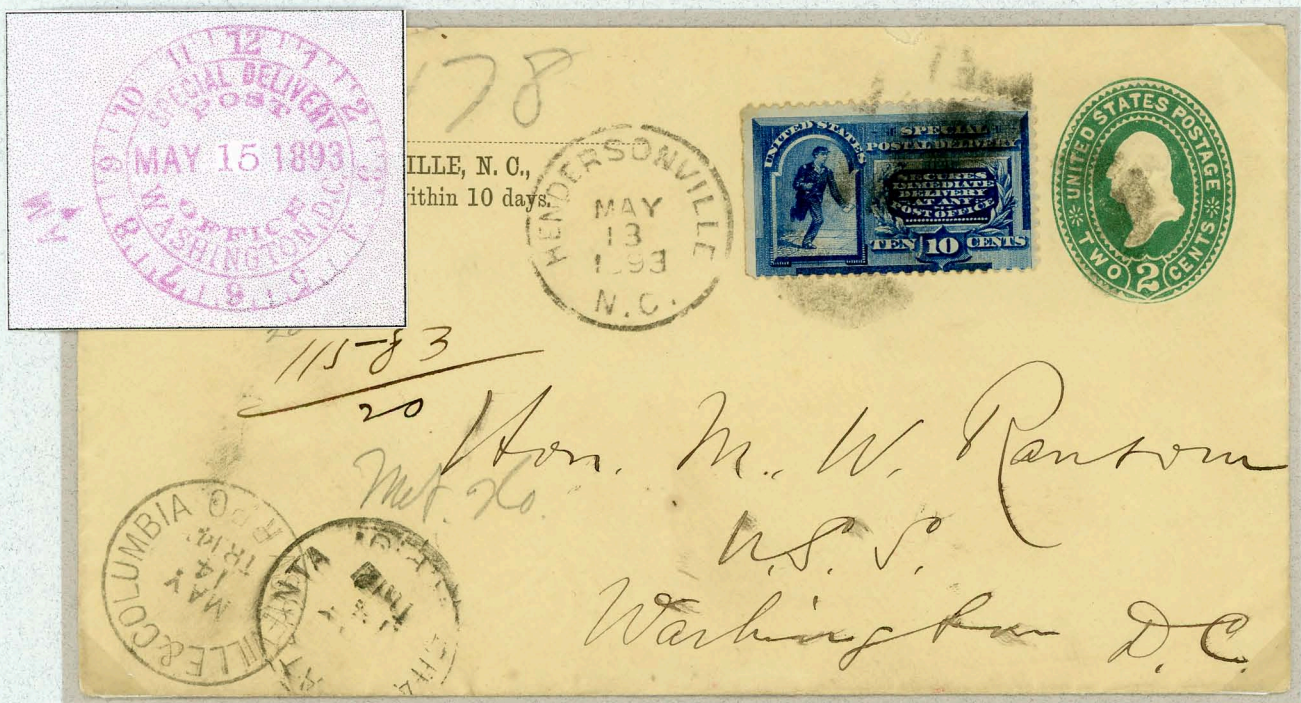 12
11 1
SPECIAL DELIVERY
10 POST 2
9 MAY 15 1893 3
OFFICE
WASHINGTON, D.C.
8 4
7 6 5
78
ILLE, N. C.,
ithin 10 days.
HENDERSONVILLE
MAY
13
1893
N.C.
UNITED STATES
SPECIAL
POSTAL DELIVERY
SECURES
IMMEDIATE
DELIVERY
AT ANY
POST OFFICE
TEN 10 CENTS
UNITED STATES POSTAGE
TWO 2 CENTS
115-83
20
Hon. M. W. Ransom
U.S.S.
Washington D.C.
Met. Ho.
VILLE & COLUMBIA R.P.O.
MAY
14
TR 14